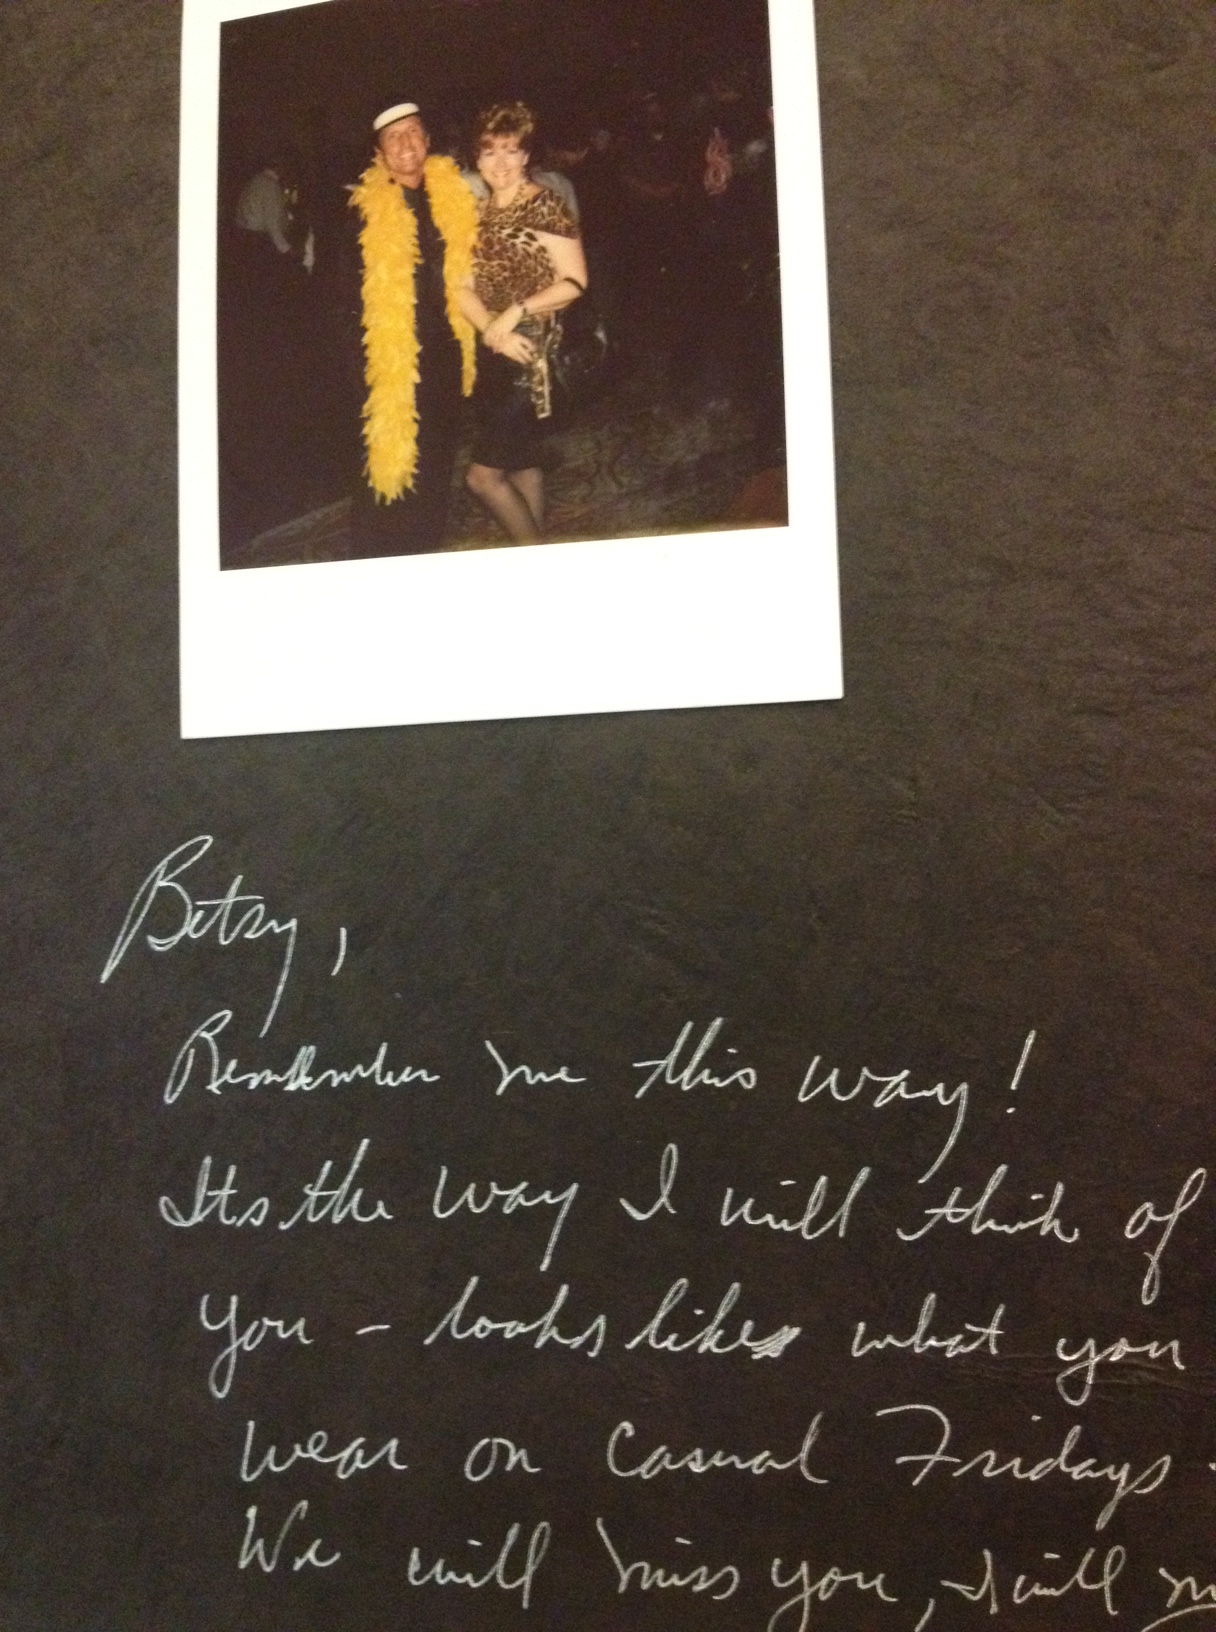 Betsy,
Remember me this way!
Its the way I will think of
you - looks like what you
wear on Casual Fridays.
We will miss you, I will